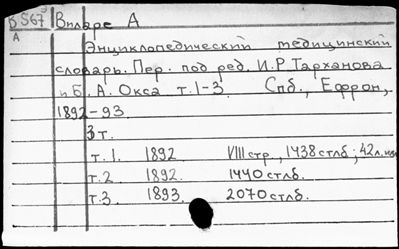 В 567 Виларе А
А
Энциклопедический медицинский
словарь. Пер. под ред. И.Р. Тарханова
и Б.А. Окса т. 1-3. Спб., Ефрон,
1892-93.
3 т.
т.1. 1892. VIII стр., 1438 стлб; 42 л. илл.
т.2 1892. 1440 стлб.
т.3. 1893. 2070 стлб.